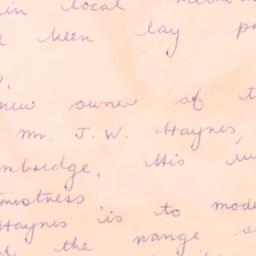 in local
been lay
new owner of t
Mr. J. W. Haynes,
mbridge. His
mistress
Haynes is to mode
the range a